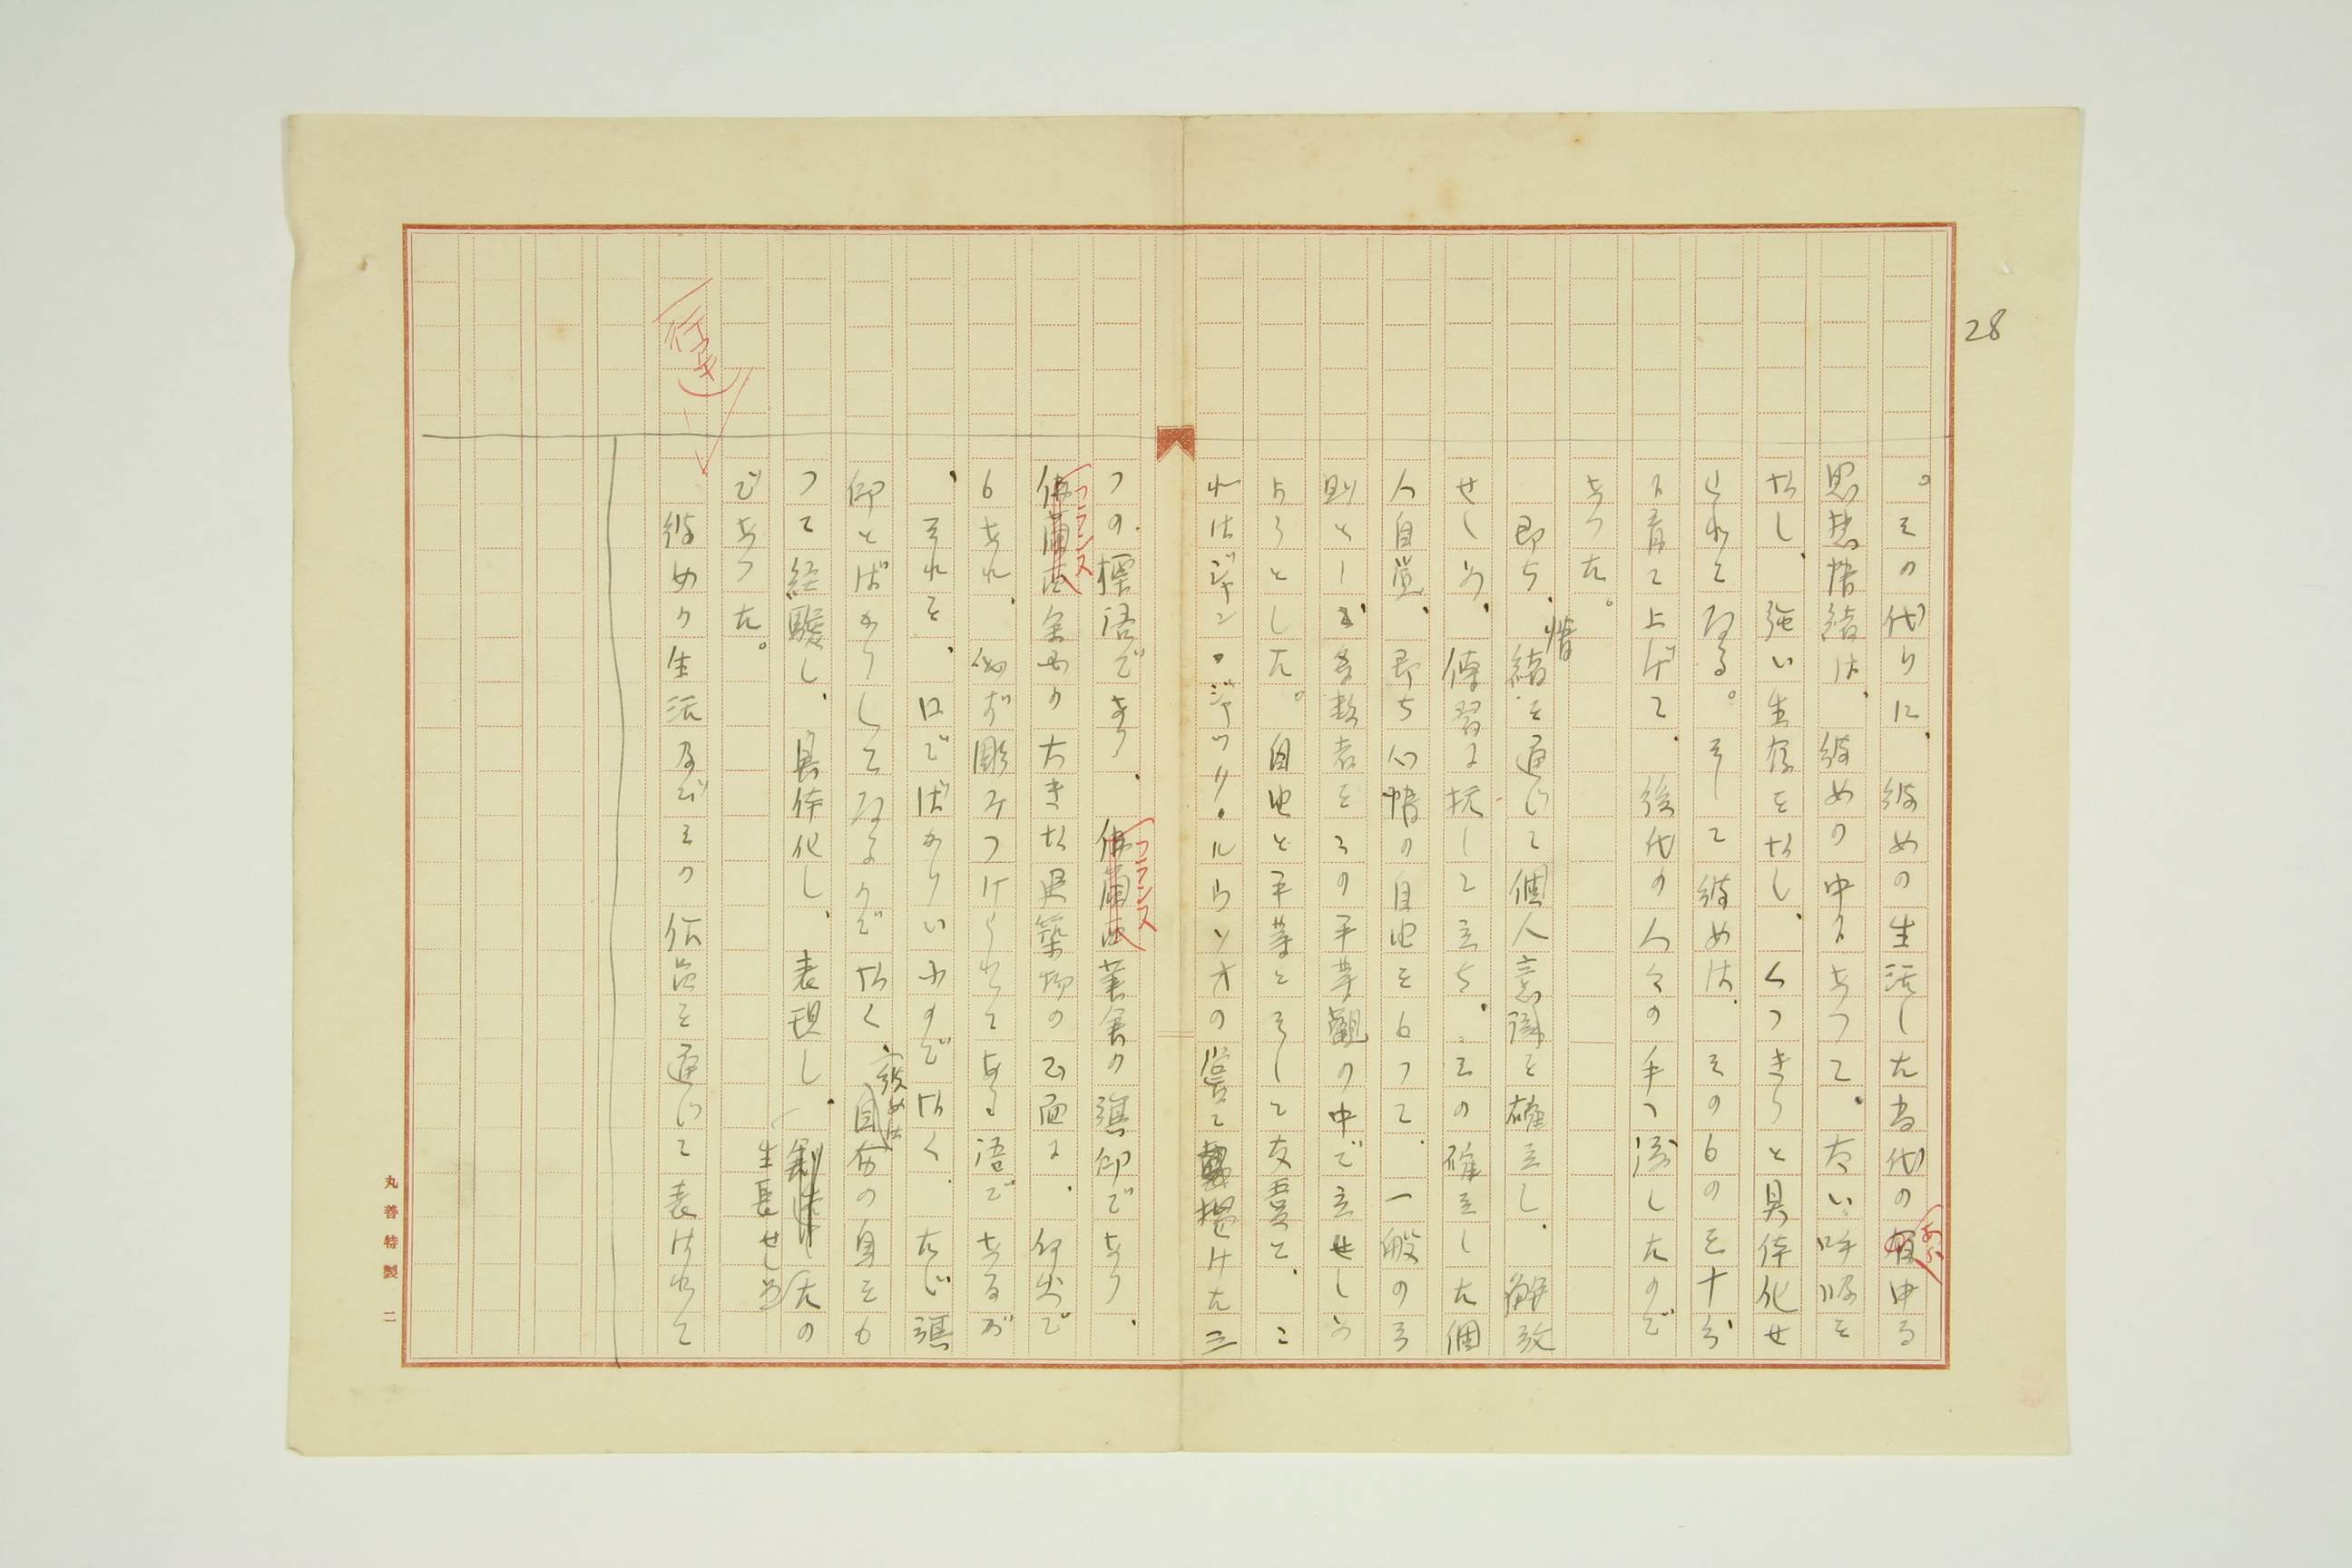 28
。その代りに、彼女の生活した当代の有ゆる
あら
思想情緒は、彼女の中にあつて、大い呼吸を
なし、強い生存をなし、くつきりと具体化せ
られてゐる。そして彼女は、そのものを十分
に育て上げて、後代の人々の手へ渡したので
あつた。
即ち、情緒を通じて個人意識を確立し、解放
せしめ、傳習に抗して立ち、その確立した個
人自覚、即ち心情の自由をもつて、一般の
則とし、多数者をその平等観の中で立せしめ
ようとした。自由と平等とそして友愛と、こ
れはジャン・ジャック・ルウソオの嘗て掲げた三
つの標語であり、佛蘭西革命の讃仰であり、
フランス
佛蘭西全国の大きな建築物の正面に、何処で
フランス
もあれ、必ず彫みつけられてある語であるが
、それを、口でばかりいふのでなく、ただ讃
仰とばかりしてゐるのでなく、彼女は自分の身をも
つて経験し、具体化し、表現し、生長せしめたの
であつた。
(行逆)
彼女の生活及びその作品を通じて表はれて
丸善特製 二